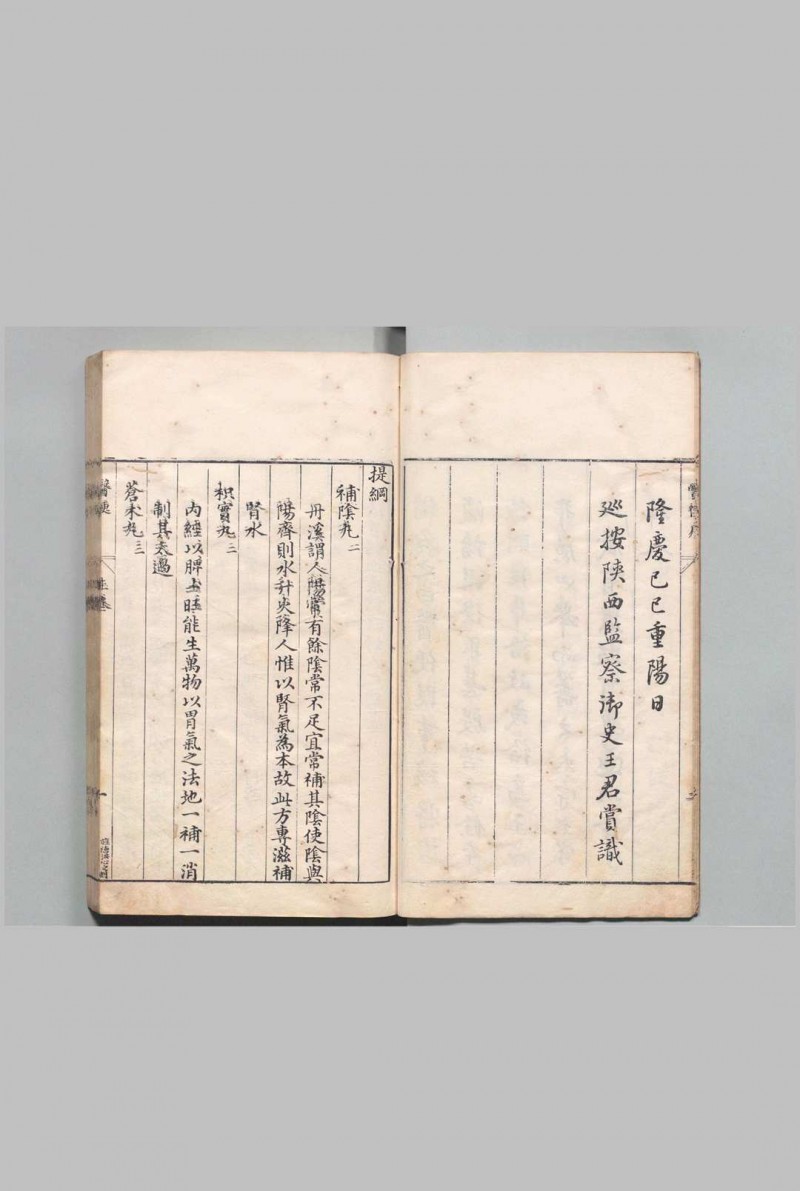 隆慶己巳重陽日
巡按陝西監察御史王君賞識
提綱
補陰丸二
丹溪謂人陽常有餘陰常不足宜常補其陰使陰與
陽齊則水升火降人惟以腎氣為本故此方專滋補
腎水
枳實丸三
內經以脾土旺能生萬物以胃氣之法地一補一消
制其太過
蒼朮丸三